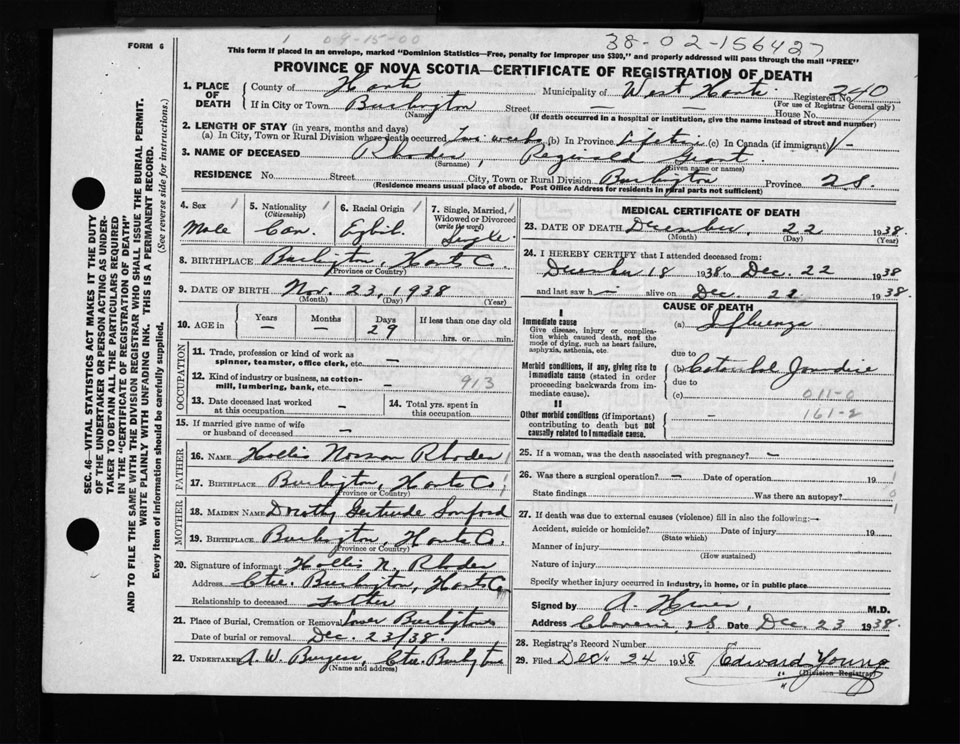 FORM 6
1 08-15-00 38-02-156427
This form if placed in an envelope, marked "Dominion Statistics—Free, penalty for improper use $300," and properly addressed will pass through the mail "FREE"
PROVINCE OF NOVA SCOTIA—CERTIFICATE OF REGISTRATION OF DEATH
1. PLACE OF DEATH
County of Hants Municipality of West Hants Registered No. 240
(For use of Registrar General only)
If in City or Town Burlington Street — House No.
(Name) (If death occurred in a hospital or institution, give the name instead of street and number)
2. LENGTH OF STAY (in years, months and days)
(a) In City, Town or Rural Division where death occurred Two weeks (b) In Province Lifetime (c) In Canada (if immigrant) —
3. NAME OF DECEASED Rhodes, Reginald Grant.
(Surname) (Given name or names)
RESIDENCE No. Street City, Town or Rural Division Burlington Province N.S.
(Residence means usual place of abode. Post Office Address for residents in rural parts not sufficient)
4. Sex
Male
5. Nationality
(Citizenship)
Can.
6. Racial Origin
7. Single, Married, Widowed or Divorced
(write the word)
Single.
8. BIRTHPLACE Burlington, Hants Co.
(Province or Country)
9. DATE OF BIRTH Nov. 23, 1938
(Month) (Day) (Year)
10. AGE in
Years — Months — Days 29
If less than one day old
hrs. or min.
OCCUPATION
11. Trade, profession or kind of work as spinner, teamster, office clerk, etc. —
12. Kind of industry or business, as cotton-mill, lumbering, bank, etc. — 913
13. Date deceased last worked at this occupation —
14. Total yrs. spent in this occupation
15. If married give name of wife or husband of deceased —
FATHER
16. NAME Hollis Norman Rhodes
17. BIRTHPLACE Burlington, Hants Co.
(Province or Country)
MOTHER
18. MAIDEN NAME Dorothy Gertrude Sanford
19. BIRTHPLACE Burlington, Hants Co.
(Province or Country)
20. Signature of informant Hollis N. Rhodes
Address Ctre. Burlington, Hants Co.
Relationship to deceased Father
21. Place of Burial, Cremation or Removal Lower Burlington
Date of burial or removal Dec. 23/38.
22. UNDERTAKER A. W. Burgess, Ctre. Burlington
(Name and address)
MEDICAL CERTIFICATE OF DEATH
23. DATE OF DEATH December, 22 1938.
(Month) (Day) (Year)
24. I HEREBY CERTIFY that I attended deceased from:
December 18 1938 to Dec. 22 1938
and last saw h im alive on Dec. 22 1938.
CAUSE OF DEATH
I
Immediate cause
Give disease, injury or complication which caused death, not the mode of dying, such as heart failure, asphyxia, asthenia, etc.
(a) Influenza
due to
Morbid conditions, if any, giving rise to immediate cause (stated in order proceeding backwards from immediate cause).
(b) Catarrhal Jaundice
due to
(c) 011-0
161-2
II
Other morbid conditions (if important) contributing to death but not causally related to immediate cause.
—
25. If a woman, was the death associated with pregnancy? —
26. Was there a surgical operation? — Date of operation 19
State findings Was there an autopsy?
27. If death was due to external causes (violence) fill in also the following:—
Accident, suicide or homicide? Date of injury 19
(State which)
Manner of injury
(How sustained)
Nature of injury
Specify whether injury occurred in industry, in home, or in public place
Signed by A. M.D.
Address N.S. Date Dec. 23 1938.
28. Registrar's Record Number
29. Filed Dec. 24 1938 Edward Young
(Division Registrar)
SEC. 46—VITAL STATISTICS ACT MAKES IT THE DUTY
OF THE UNDERTAKER OR PERSON ACTING AS UNDER-
TAKER TO OBTAIN ALL THE PARTICULARS REQUIRED
IN THE "CERTIFICATE OF REGISTRATION OF DEATH"
AND TO FILE THE SAME WITH THE DIVISION REGISTRAR WHO SHALL ISSUE THE BURIAL PERMIT.
WRITE PLAINLY WITH UNFADING INK. THIS IS A PERMANENT RECORD.
Every item of information should be carefully supplied. (See reverse side for instructions.)